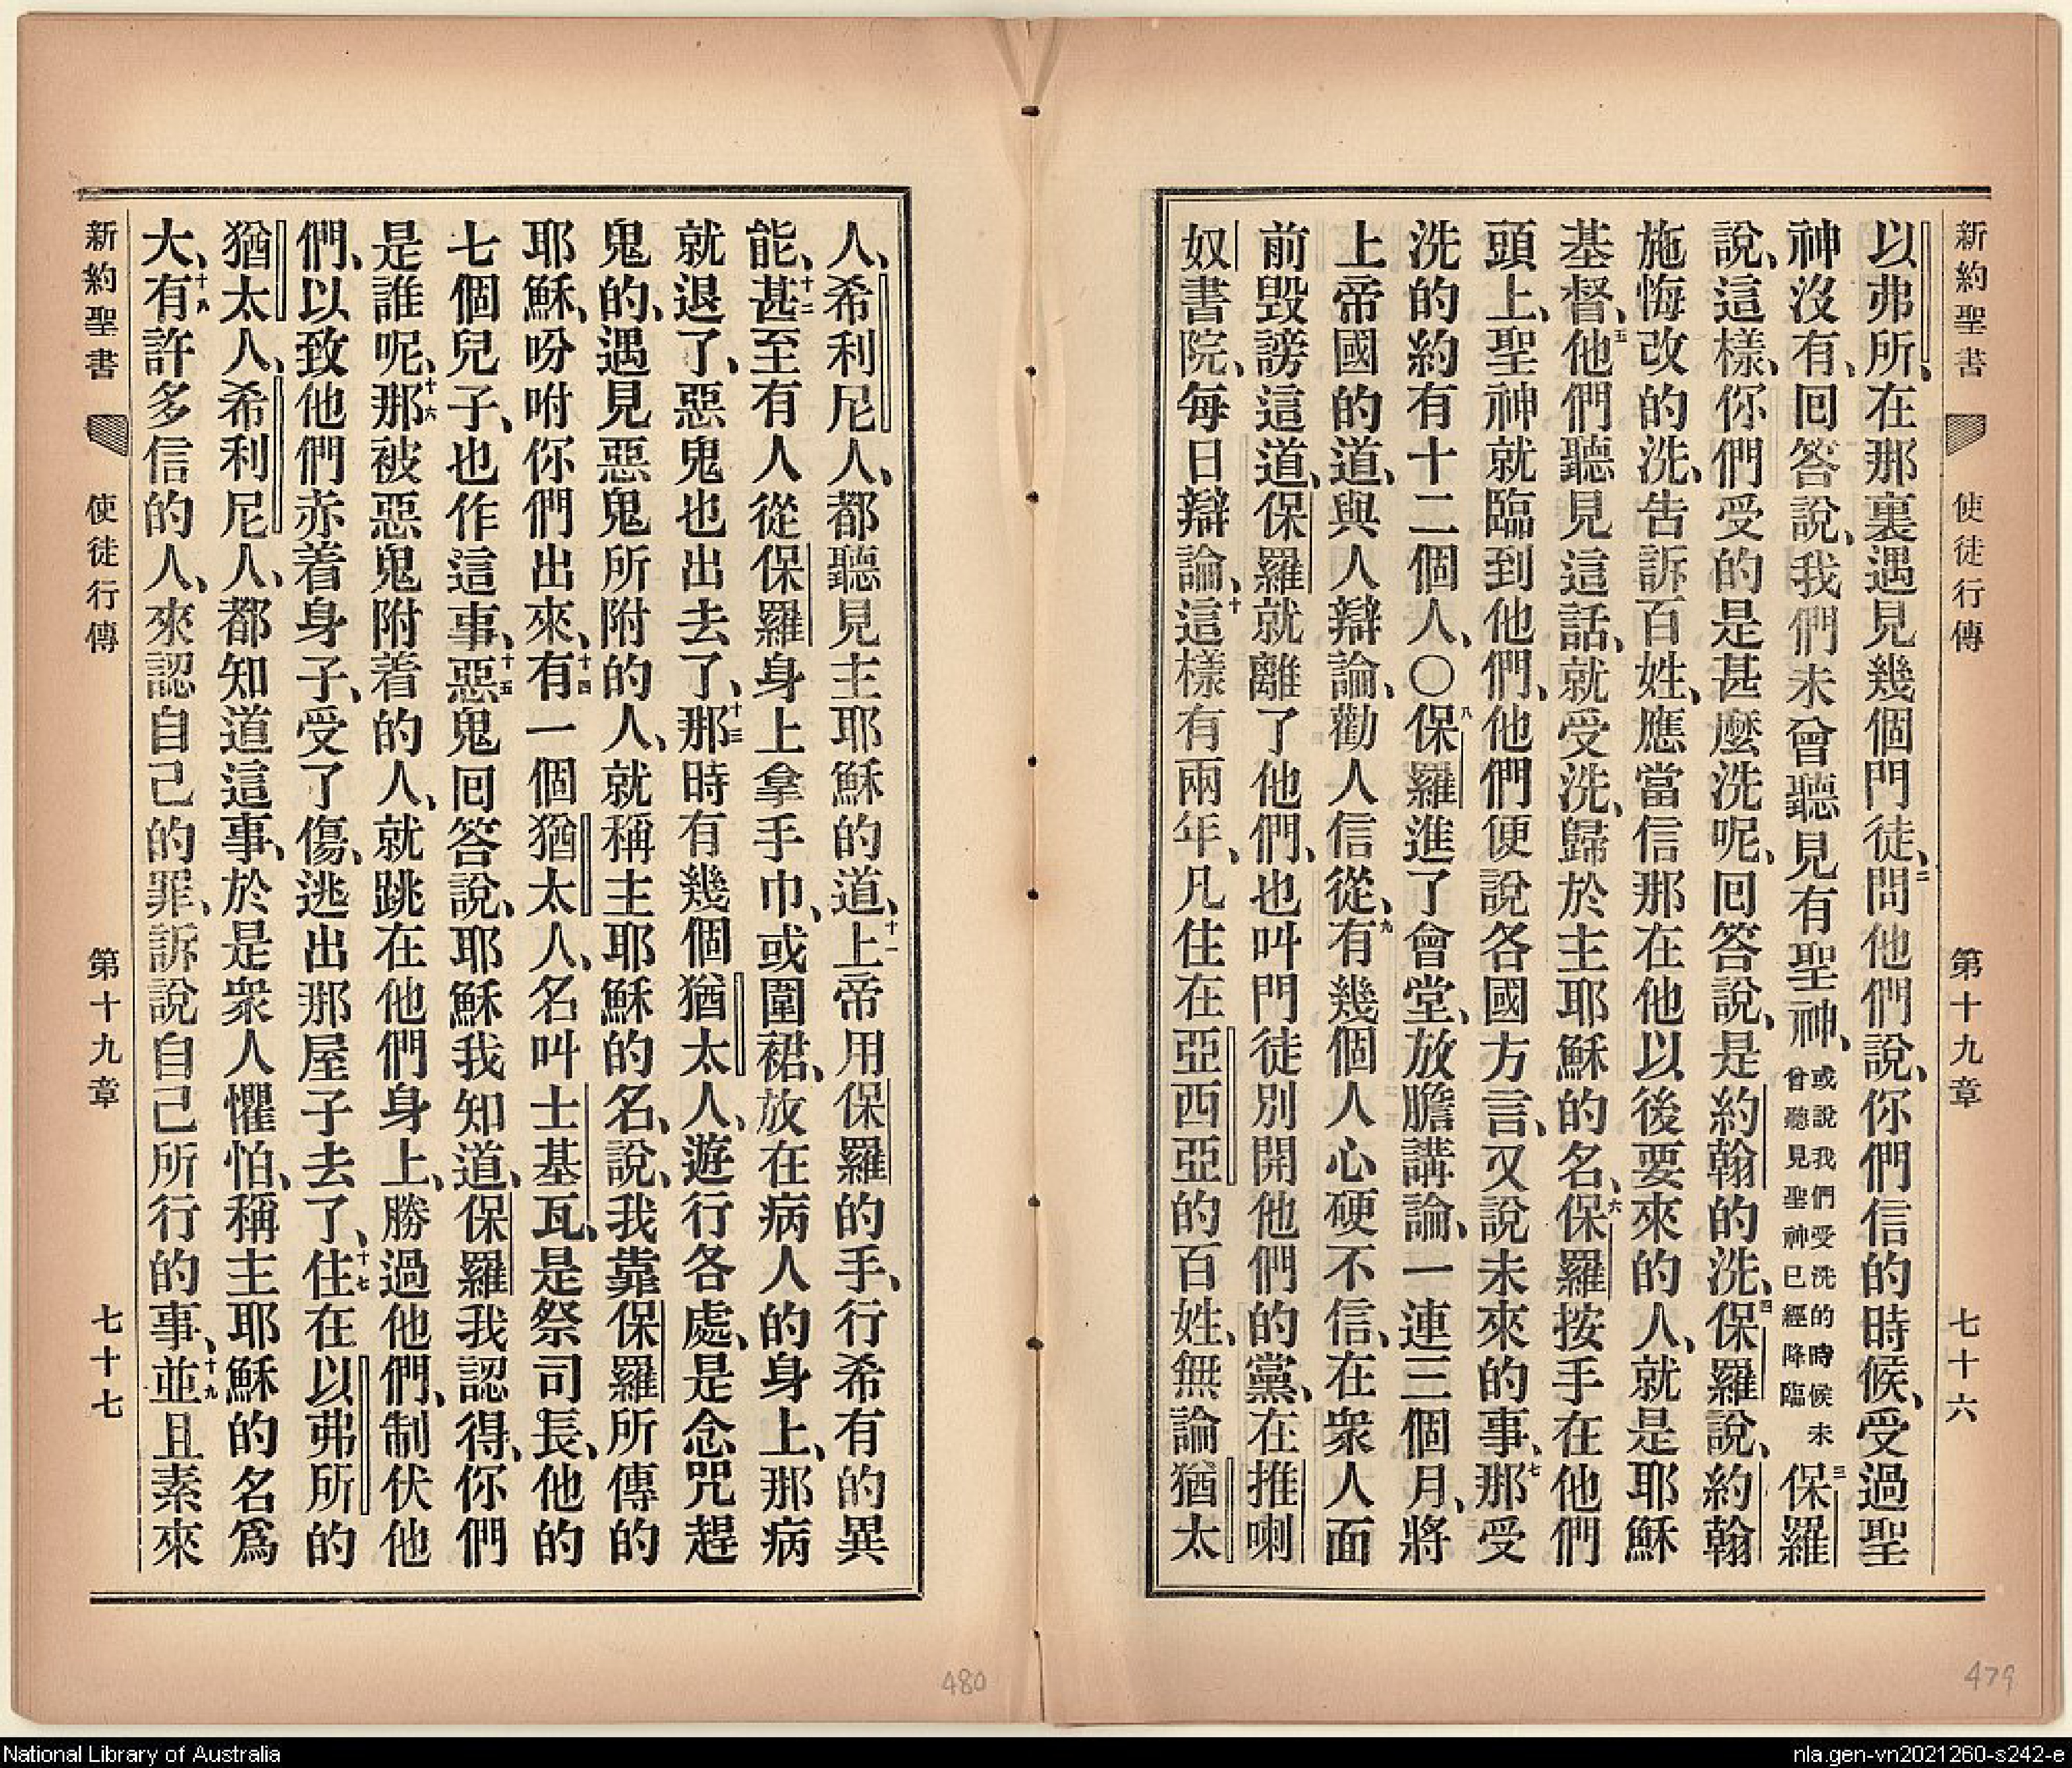 新約聖書 使徒行傳 第十九章 七十六
以弗所、在那裏遇見幾個門徒、二問他們說、你們信的時候、受過聖
神沒有、回答說、我們未曾聽見有聖神、或說我們受洗的時候未曾聽見聖神已經降臨三保羅
說、這樣、你們受的是甚麼洗呢、回答說、是約翰的洗、四保羅說、約翰
施悔改的洗、告訴百姓、應當信那在他以後要來的人、就是耶穌
基督、五他們聽見這話、就受洗、歸於主耶穌的名、六保羅按手在他們
頭上、聖神就臨到他們、他們便說各國方言、又說未來的事、七那受
洗的約有十二個人、〇八保羅進了會堂、放膽講論、一連三個月、將
上帝國的道、與人辯論、勸人信從、九有幾個人心硬不信、在衆人面
前毀謗這道、保羅就離了他們、也叫門徒別開他們的黨、在推喇
奴書院、每日辯論、十這樣有兩年、凡住在亞西亞的百姓、無論猶太
人、希利尼人、都聽見主耶穌的道、十一上帝用保羅的手、行希有的異
能、十二甚至有人從保羅身上拿手巾、或圍裙、放在病人的身上、那病
就退了、惡鬼也出去了、十三那時有幾個猶太人、遊行各處、是念咒趕
鬼的、遇見惡鬼所附的人、就稱主耶穌的名、說、我靠保羅所傳的
耶穌、吩咐你們出來、十四有一個猶太人、名叫士基瓦、是祭司長、他的
七個兒子、也作這事、十五惡鬼回答說、耶穌我知道、保羅我認得、你們
是誰呢、十六那被惡鬼附着的人、就跳在他們身上、勝過他們、制伏他
們、以致他們赤着身子、受了傷、逃出那屋子去了、十七住在以弗所的
猶太人、希利尼人、都知道這事、於是衆人懼怕、稱主耶穌的名爲
大、十八有許多信的人、來認自己的罪、訴說自己所行的事、十九並且素來
新約聖書 使徒行傳 第十九章 七十七
480
479
National Library of Australia
nla.gen-vn2021260-s242-e